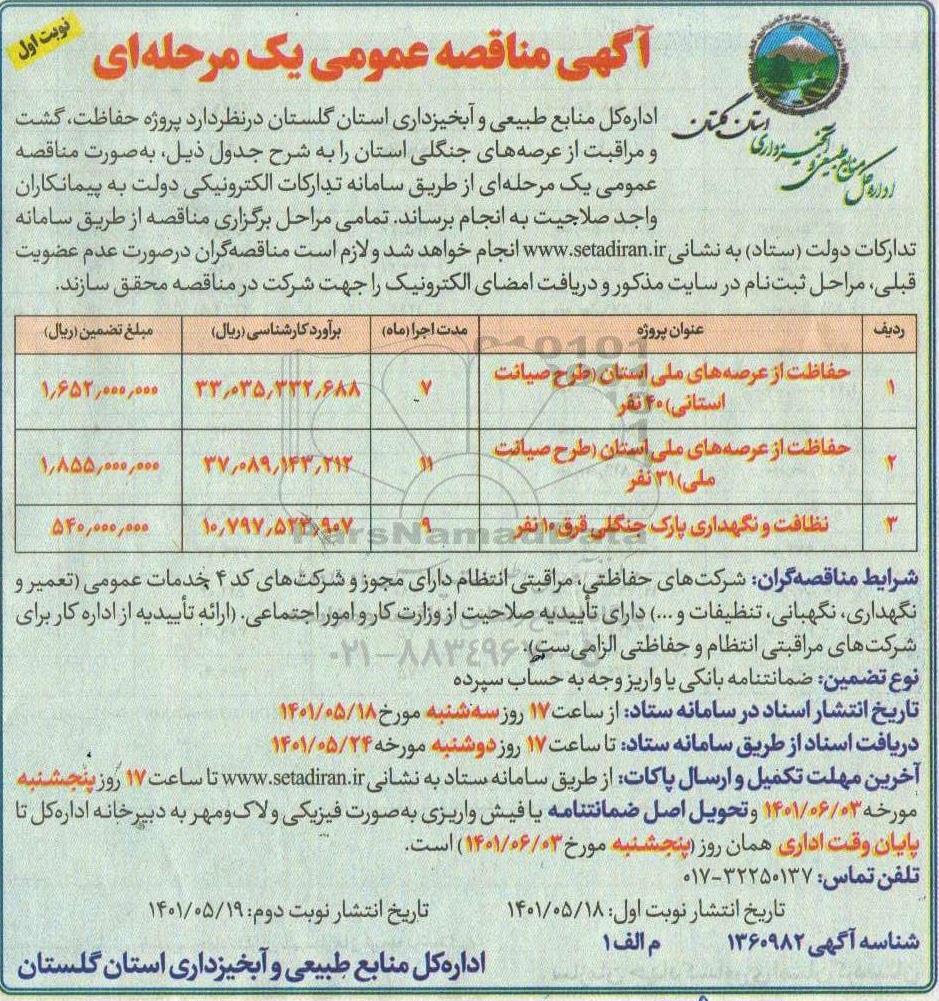 نوبت اول
آگهی مناقصه عمومی یک مرحله‌ای
اداره کل منابع طبیعی و آبخیزداری استان گلستان
اداره‌کل منابع طبیعی و آبخیزداری استان گلستان درنظردارد پروژه حفاظت، گشت
و مراقبت از عرصه‌های جنگلی استان را به شرح جدول ذیل، به‌صورت مناقصه
عمومی یک مرحله‌ای از طریق سامانه تدارکات الکترونیکی دولت به پیمانکاران
واجد صلاحیت به انجام برساند. تمامی مراحل برگزاری مناقصه از طریق سامانه
تدارکات دولت (ستاد) به نشانی www.setadiran.ir انجام خواهد شد و لازم است مناقصه‌گران درصورت عدم عضویت
قبلی، مراحل ثبت‌نام در سایت مذکور و دریافت امضای الکترونیک را جهت شرکت در مناقصه محقق سازند.
ردیف عنوان پروژه مدت اجرا (ماه) برآورد کارشناسی (ریال) مبلغ تضمین (ریال)
۱ حفاظت از عرصه‌های ملی استان (طرح صیانت استانی) ۴۰ نفر ۷ ۳۳,۰۳۵,۳۳۲,۶۸۸ ۱,۶۵۲,۰۰۰,۰۰۰
۲ حفاظت از عرصه‌های ملی استان (طرح صیانت ملی) ۳۱ نفر ۱۱ ۳۷,۰۸۹,۱۴۳,۲۱۲ ۱,۸۵۵,۰۰۰,۰۰۰
۳ نظافت و نگهداری پارک جنگلی قرق ۱۰ نفر ۹ ۱۰,۷۹۷,۵۲۳,۹۰۷ ۵۴۰,۰۰۰,۰۰۰
ParsNamadData
۰۲۱-۸۸۳۴۹۶۷۰
شرایط مناقصه‌گران: شرکت‌های حفاظتی، مراقبتی انتظام دارای مجوز و شرکت‌های کد ۴ خدمات عمومی (تعمیر و
نگهداری، نگهبانی، تنظیفات و ...) دارای تأییدیه صلاحیت از وزارت کار و امور اجتماعی. (ارائه تأییدیه از اداره کار برای
شرکت‌های مراقبتی انتظام و حفاظتی الزامی‌ست).
نوع تضمین: ضمانتنامه بانکی یا واریز وجه به حساب سپرده
تاریخ انتشار اسناد در سامانه ستاد: از ساعت ۱۷ روز سه‌شنبه مورخ ۱۴۰۱/۰۵/۱۸
دریافت اسناد از طریق سامانه ستاد: تا ساعت ۱۷ روز دوشنبه مورخه ۱۴۰۱/۰۵/۲۴
آخرین مهلت تکمیل و ارسال پاکات: از طریق سامانه ستاد به نشانی www.setadiran.ir تا ساعت ۱۷ روز پنجشنبه
مورخه ۱۴۰۱/۰۶/۰۳ و تحویل اصل ضمانتنامه یا فیش واریزی به‌صورت فیزیکی و لاک و مهر به دبیرخانه اداره‌کل تا
پایان وقت اداری همان روز (پنجشنبه مورخ ۱۴۰۱/۰۶/۰۳) است.
تلفن تماس: ۳۲۲۵۰۱۳۷-۰۱۷
تاریخ انتشار نوبت اول: ۱۴۰۱/۰۵/۱۸ تاریخ انتشار نوبت دوم: ۱۴۰۱/۰۵/۱۹
شناسه آگهی ۱۳۶۰۹۸۲ م الف ۱
اداره‌کل منابع طبیعی و آبخیزداری استان گلستان